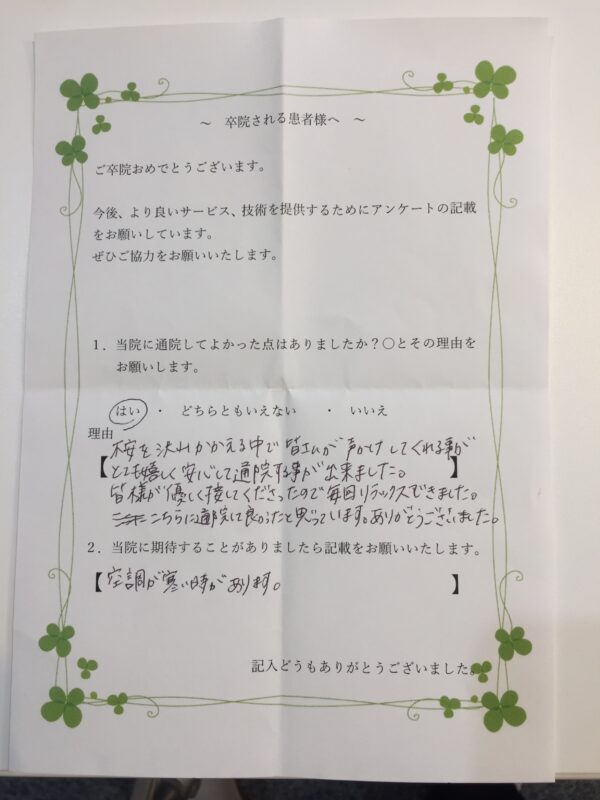 ～ 卒院される患者様へ ～
ご卒院おめでとうございます。
今後、より良いサービス、技術を提供するためにアンケートの記載
をお願いしています。
ぜひご協力をお願いいたします。
１．当院に通院してよかった点はありましたか？○とその理由を
お願いします。
はい ・ どちらともいえない ・ いいえ
理由
不安を沢山かかえる中で皆さんが声かけしてくれる事が
【とても嬉しく安心して通院する事が出来ました。】
皆様が優しく接してくださったので毎回リラックスできました。
こちらに通院して良かったと思っています。ありがとうございました。
２．当院に期待することがありましたら記載をお願いいたします。
【空調が寒い時があります。】
記入どうもありがとうございました。